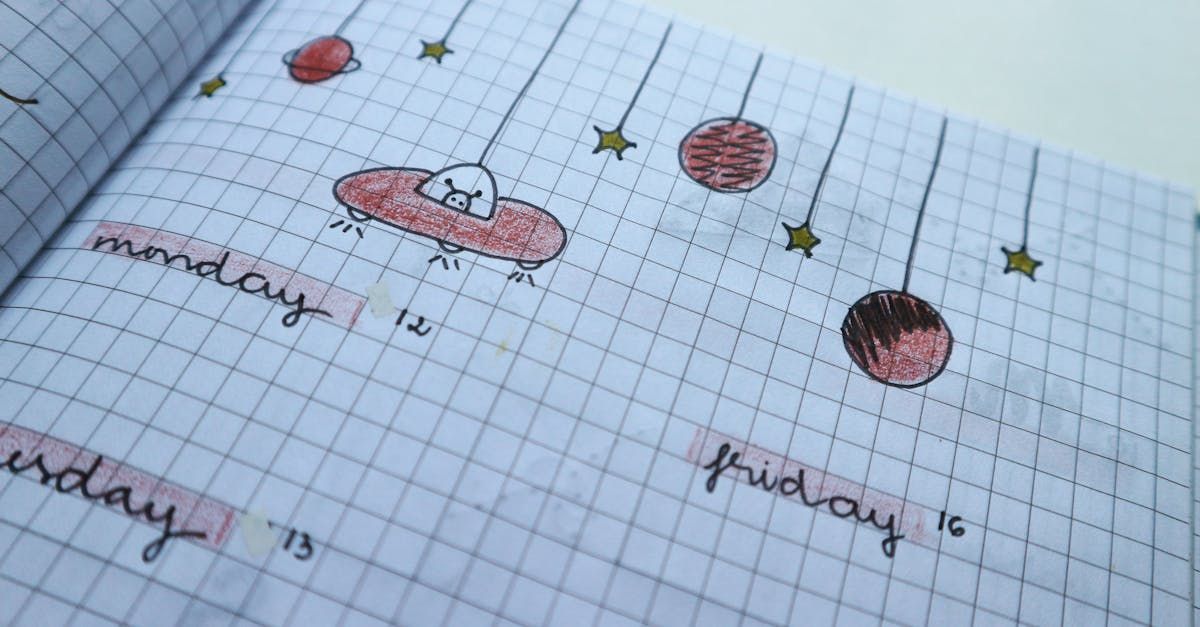 monday 12
usday 13
friday 16